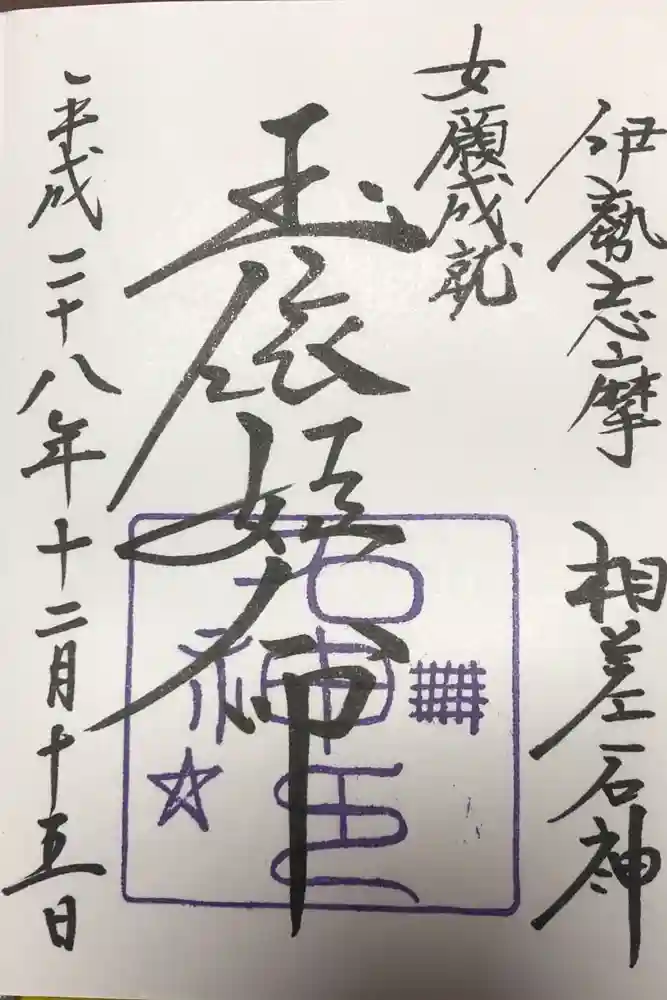 伊勢志摩 相差石神
女願成就
玉依姫命
平成二十八年十二月十五日
石神